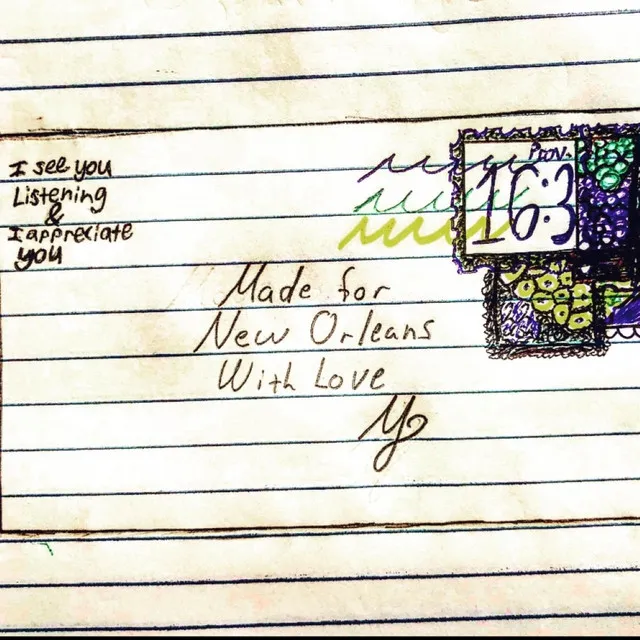 I see you
Listening
&
I appreciate
you
Prov.
16:3
Made for
New Orleans
With Love